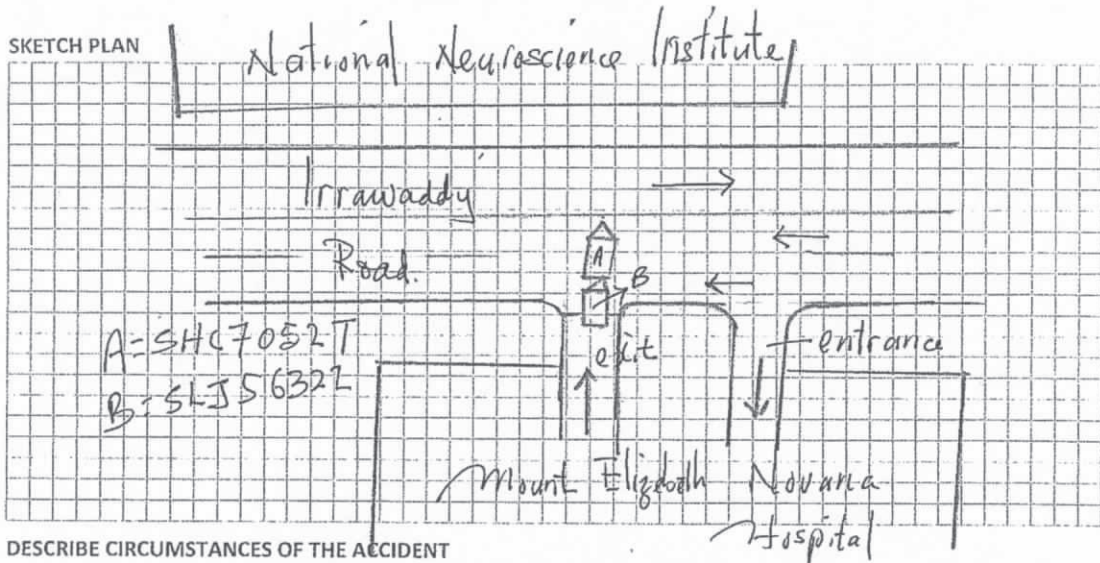 SKETCH PLAN
National Neuroscience Institute
Irrawaddy
Road.
A
B
A = SHC7052T
B = SLJ5632Z
exit
entrance
Mount Elizabath Novana
Hospital
DESCRIBE CIRCUMSTANCES OF THE ACCIDENT